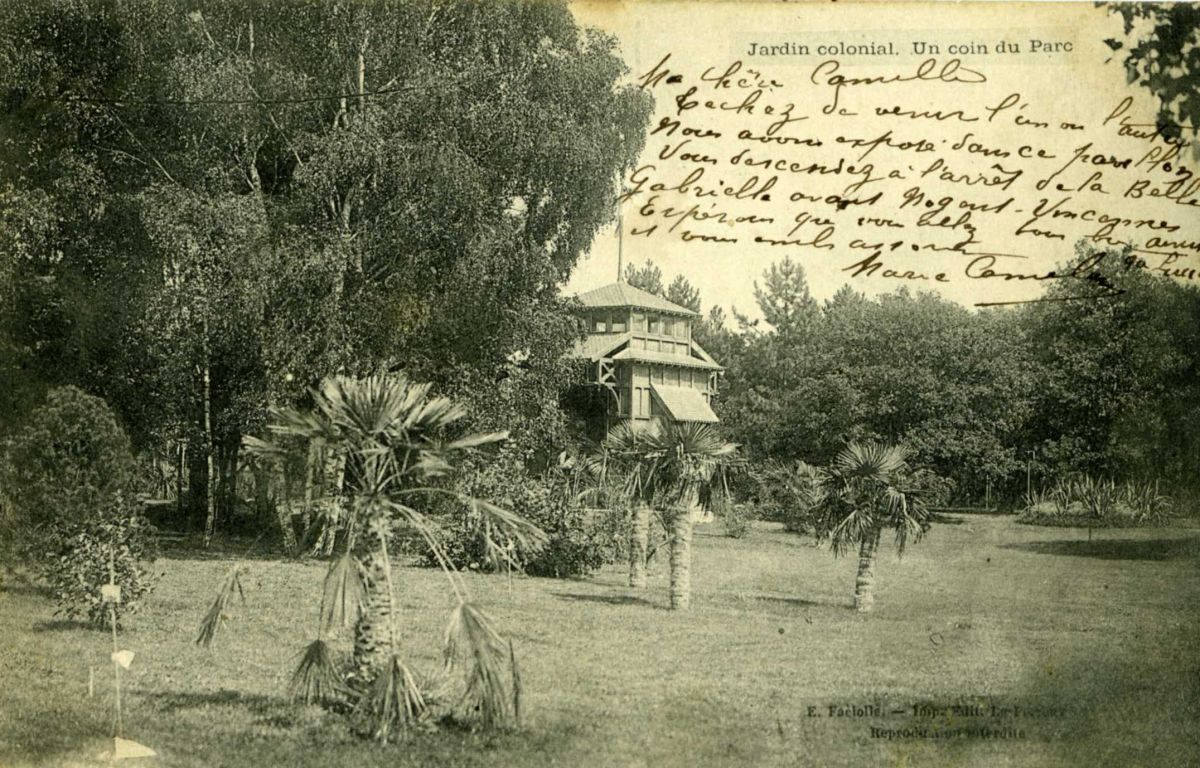 Jardin colonial. Un coin du Parc
Ma chère Camelle
Tachez de venir l'un ou l'autre
Nous avons exposé dans ce parc
Vous descendez à l'arrêt de la Belle
Gabrielle avant Nogent-Vincennes
Espérons que vous allez tous bien
et vous
Marie Camelle
E. Faciolle. — Imp. Edit. Le
Reproduction interdite